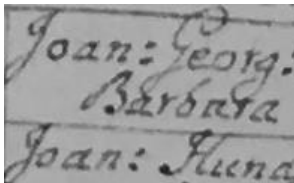 Joan: Georg:
Barbara
Joan: Huna